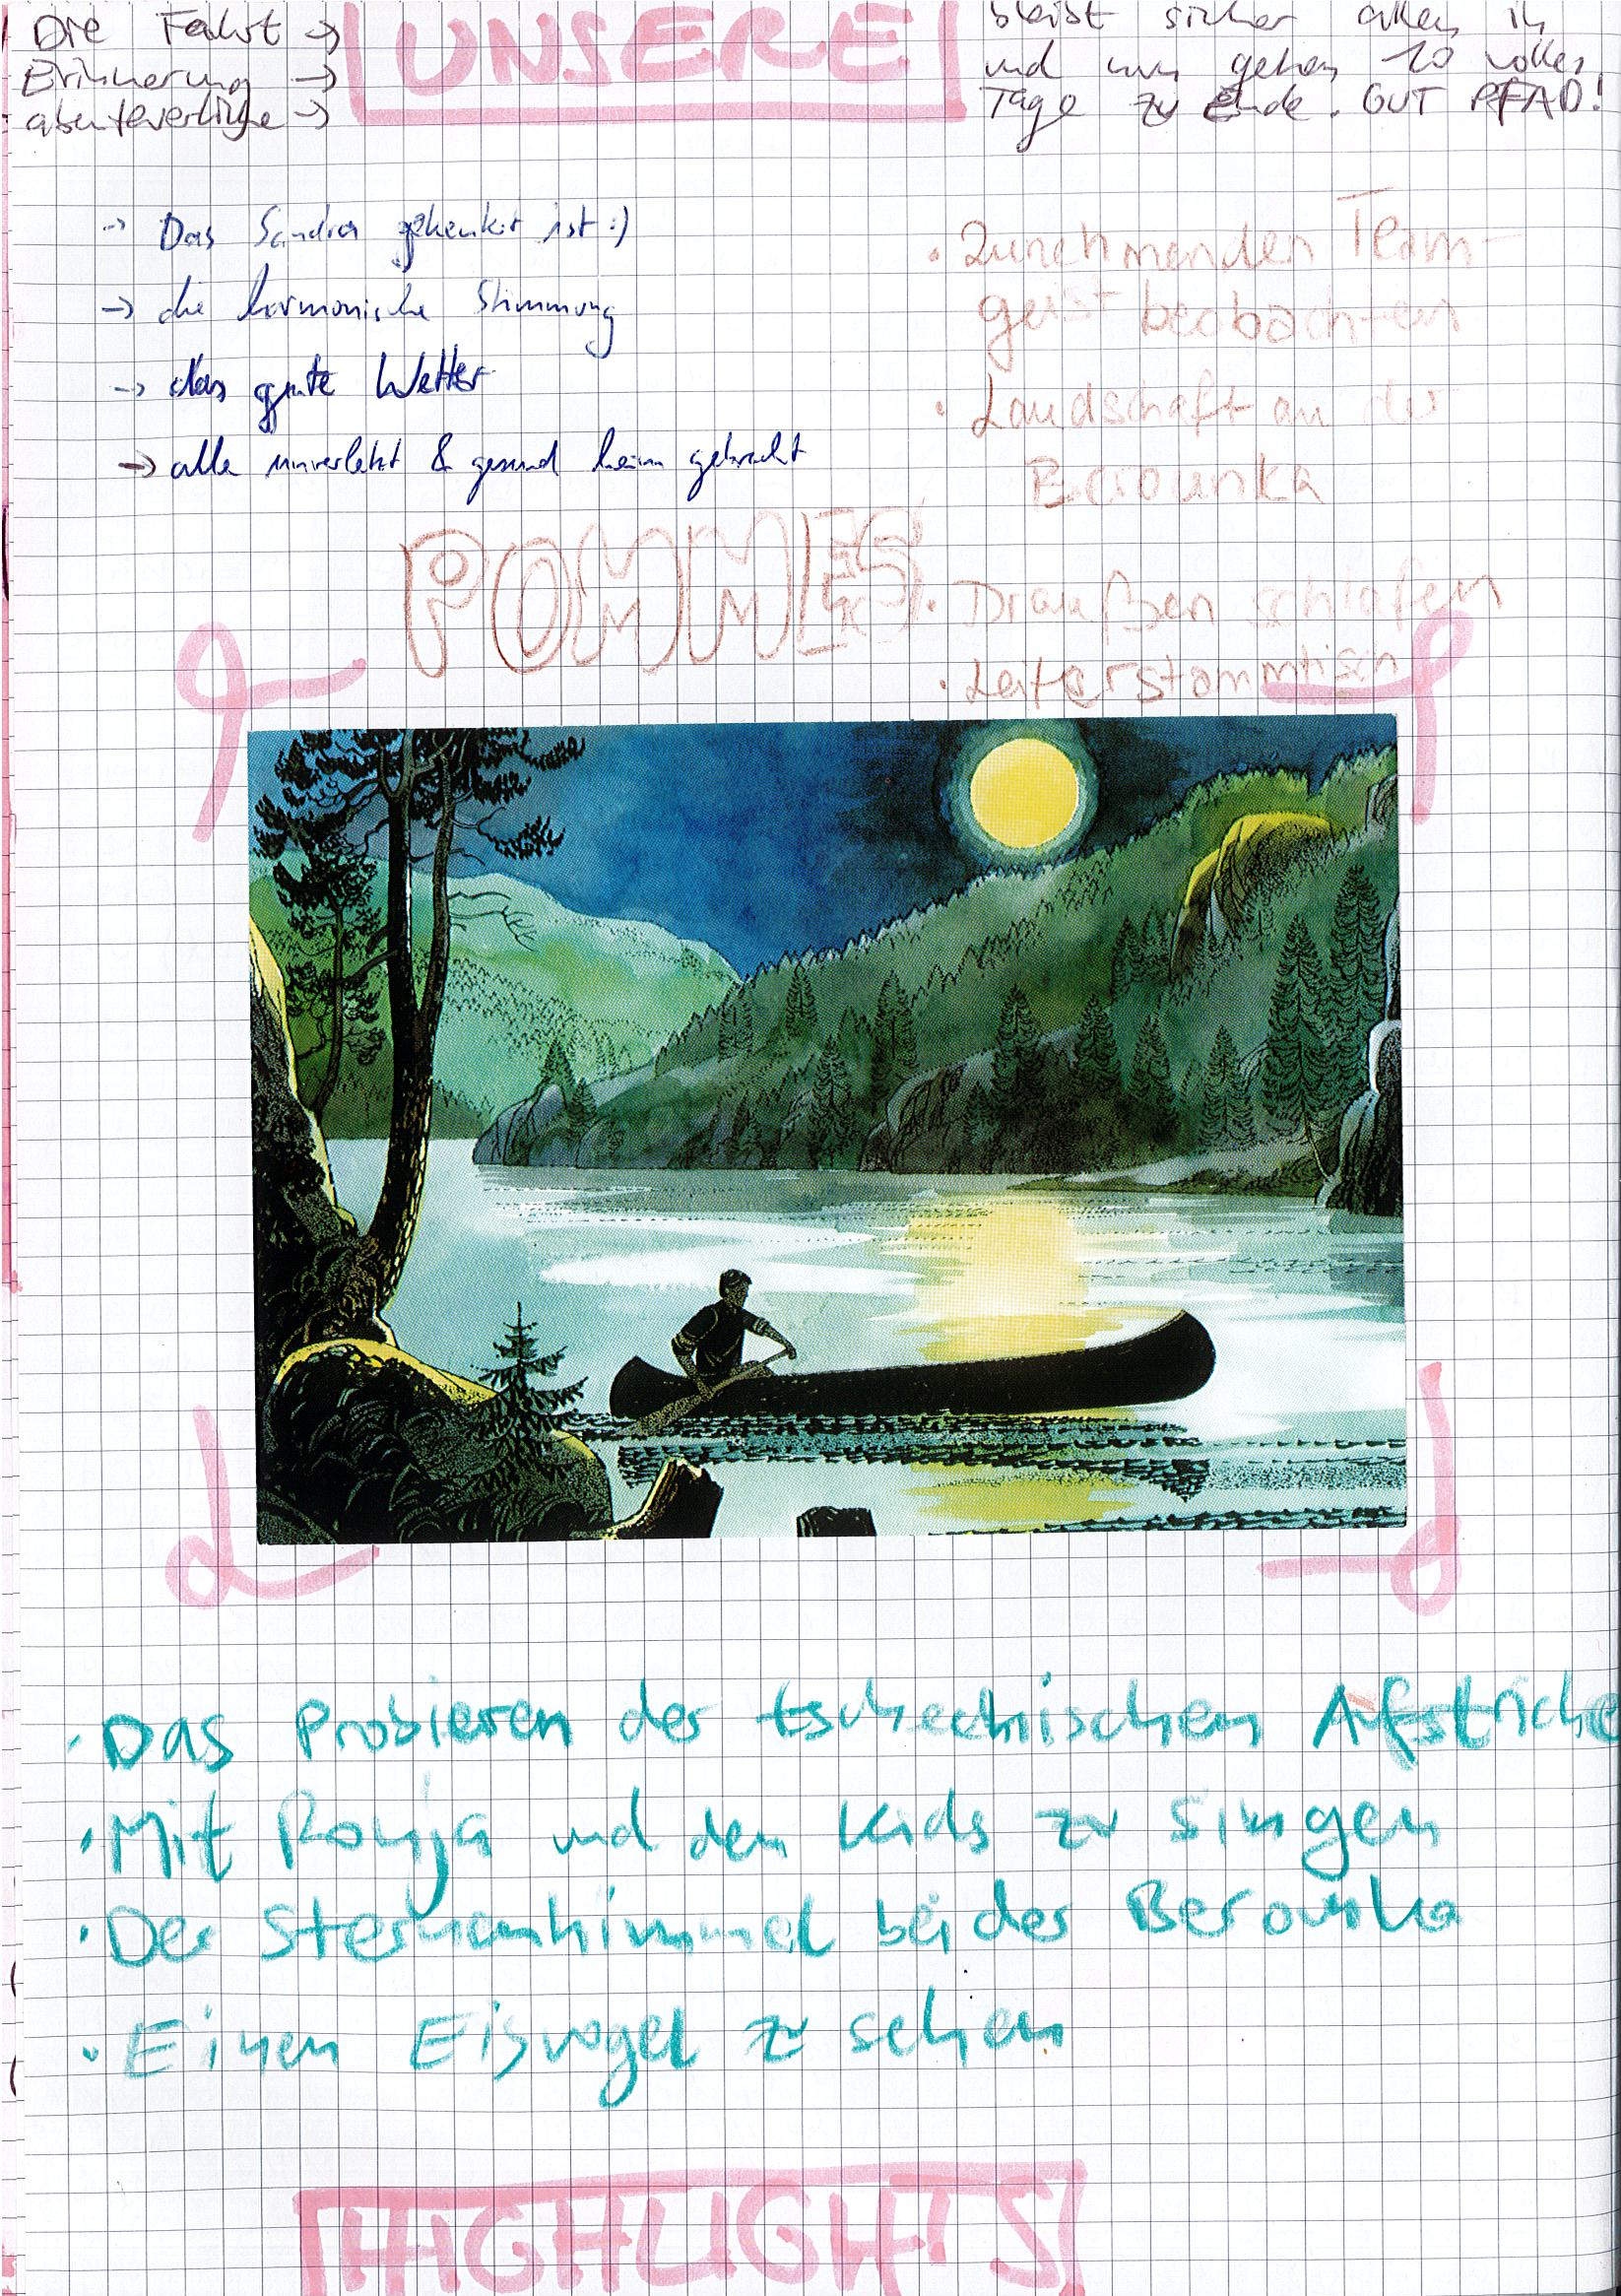 Die Fahrt →
Erinnerung →
abenteuerliche →
UNSERE
bleibt sicher allen in
und nun gehen 10 volle
Tage zu Ende. GUT PFAD!
→ Das Sandra gekenkert ist :)
→ die harmonische Stimmung
→ das gute Wetter
→ alle unverletzt & gesund heim gebracht
• Zunehmenden Team-
geist beobachten
• Landschaft an der
Berounka
• Draußen schlafen
• Leiterstammtisch
POMMES
• Das Probieren der tschechischen Afstriche
• Mit Ronja und den Kids zu singen
• Der Sternenhimmel bei der Berounka
• Einen Eisvogel zu sehen
HIGHLIGHTS